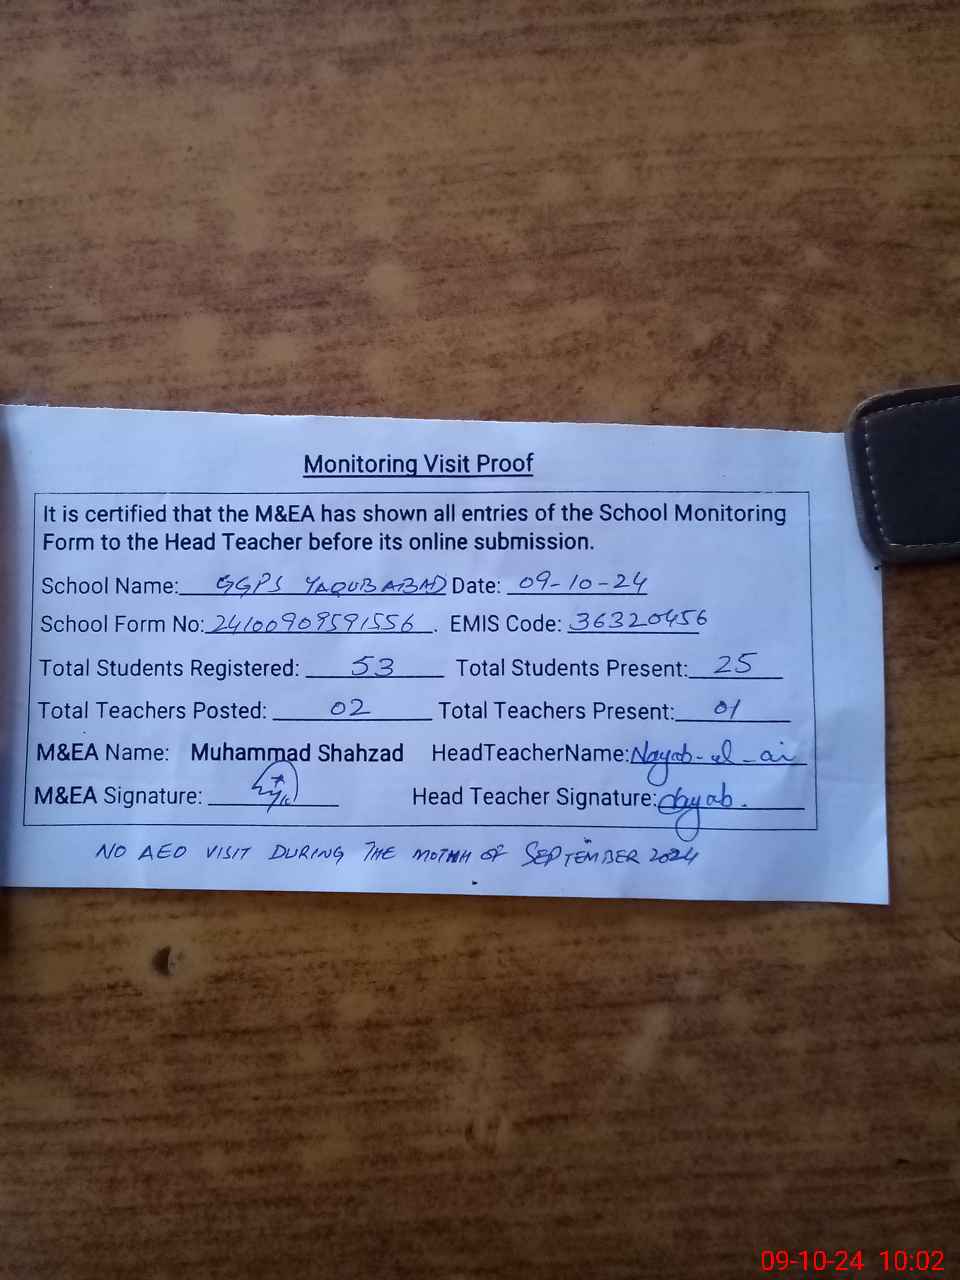 Monitoring Visit Proof
It is certified that the M&EA has shown all entries of the School Monitoring
Form to the Head Teacher before its online submission.
School Name: GGPS YAQUBABAD Date: 09-10-24
School Form No: 24100909591556. EMIS Code: 36320456
Total Students Registered: 53 Total Students Present: 25
Total Teachers Posted: 02 Total Teachers Present: 01
M&EA Name: Muhammad Shahzad HeadTeacherName: Nayab-ul-ain
M&EA Signature: Head Teacher Signature: Nayab.
NO AEO VISIT DURING THE MOTNH OF SEPTEMBER 2024
09-10-24 10:02